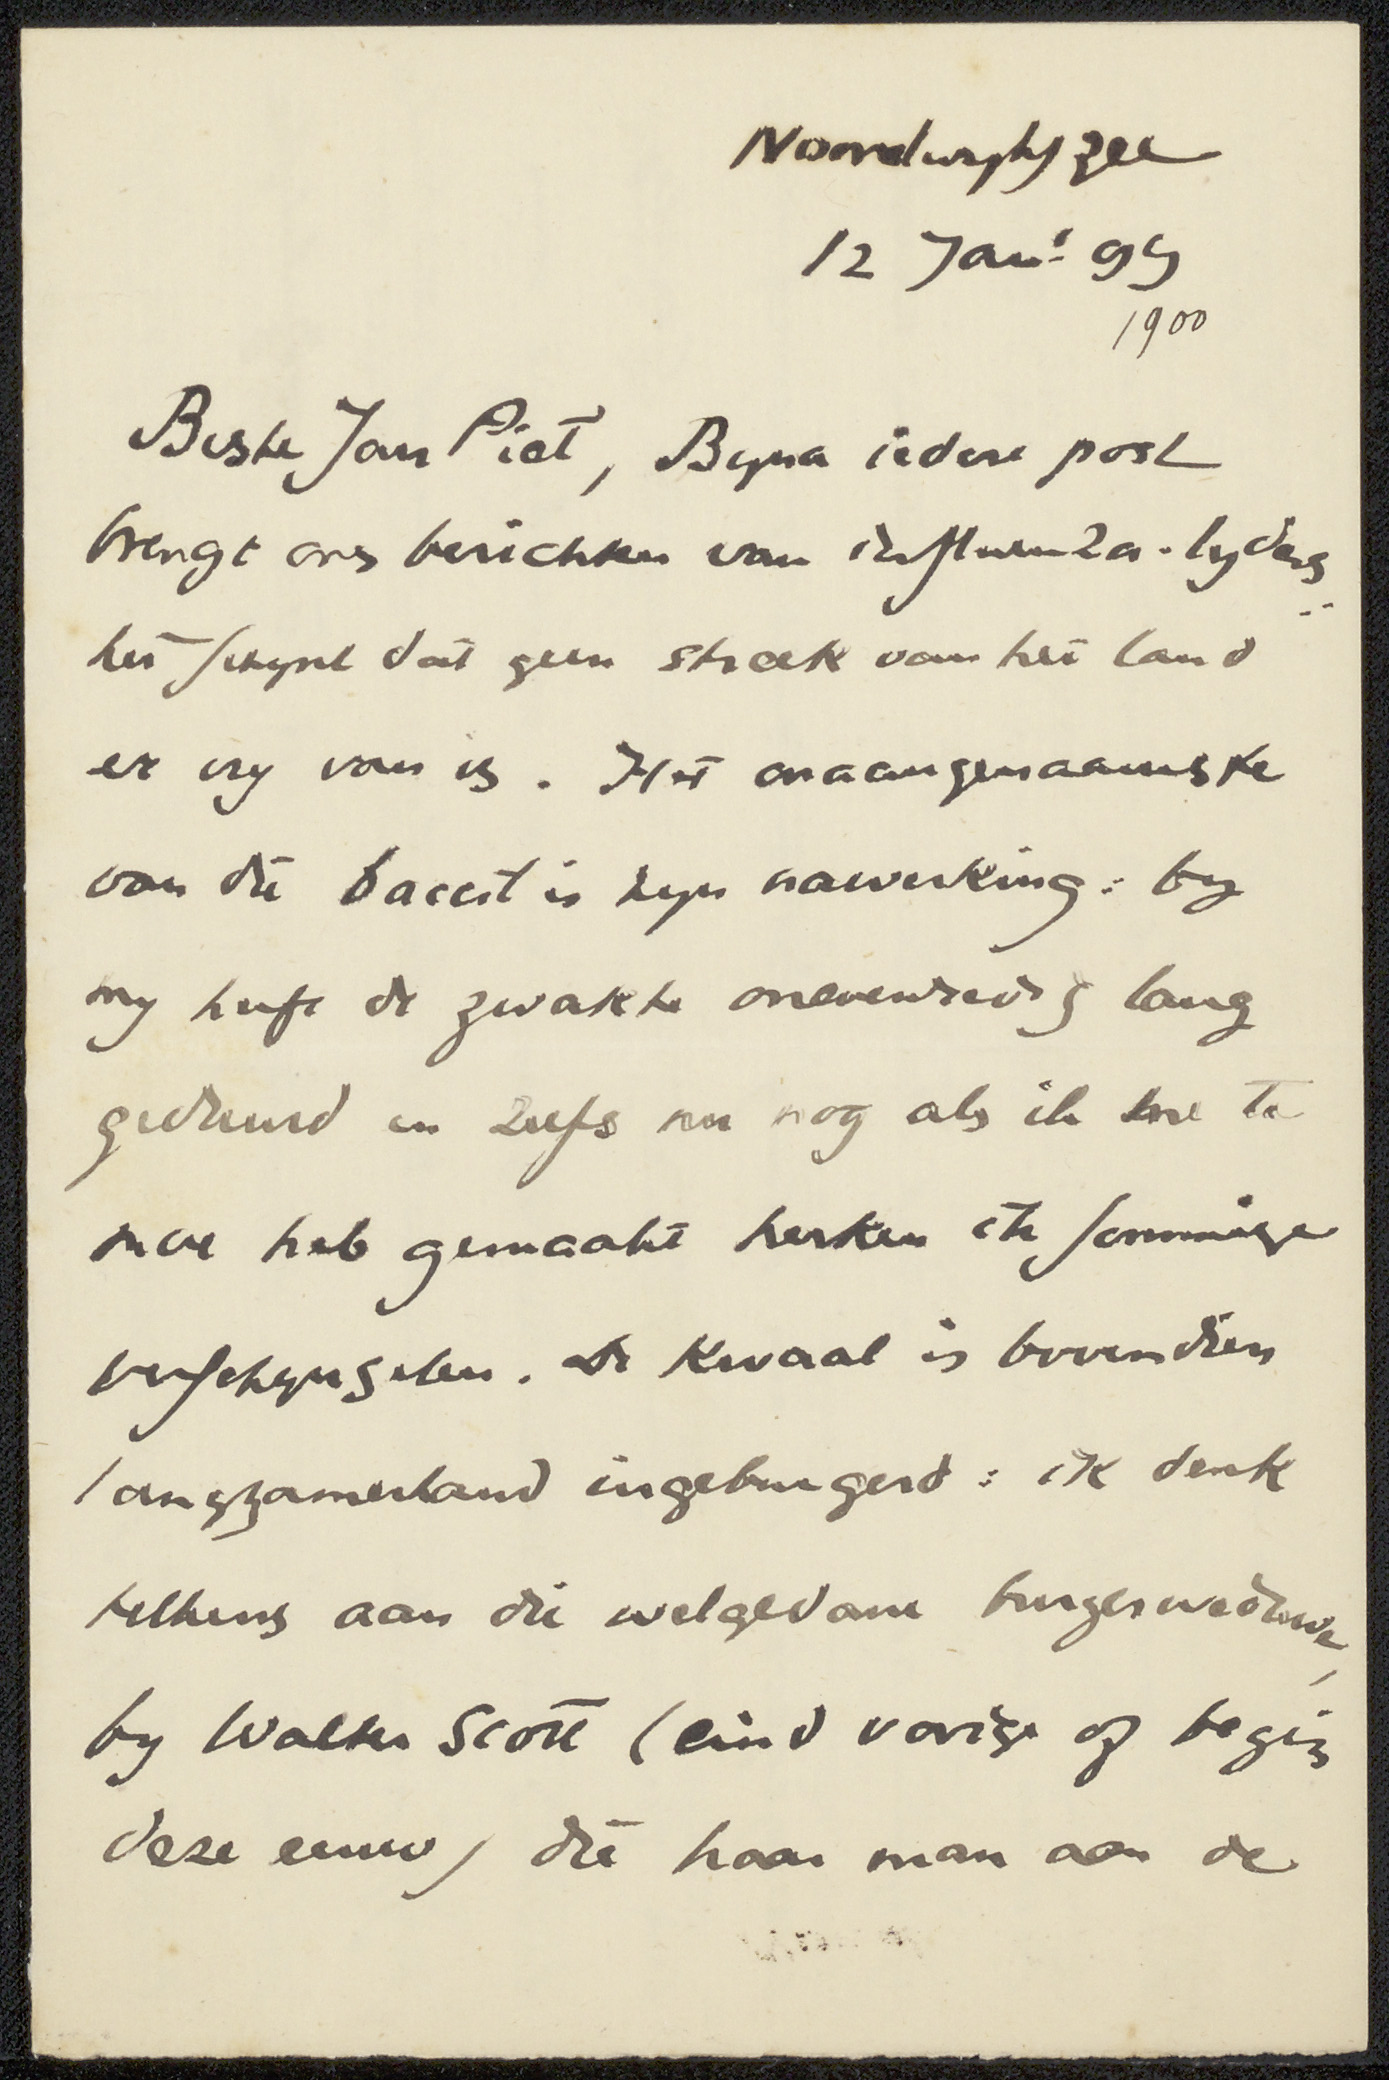 Noordwyk a/ Zee
12 Jan: 99
1900
Beste Jan Piet, Byna iedere post
brengt ons berichten van influenza-lyders
het schynt dat geen streek van het land
er vry van is. Het onaangenaamste
van die bacil is zyn nawerking: by
my heeft de zwakte onevenredig lang
geduurd en zelfs nu nog als ik me te
moe heb gemaakt herken ik sommige
verschynselen. De kwaal is bovendien
langzamerhand ingeburgerd: ik denk
telkens aan die welgedane burgerweduwe,
by Walter Scott (eind vorige of begin
deze eeuw) die haar man aan de